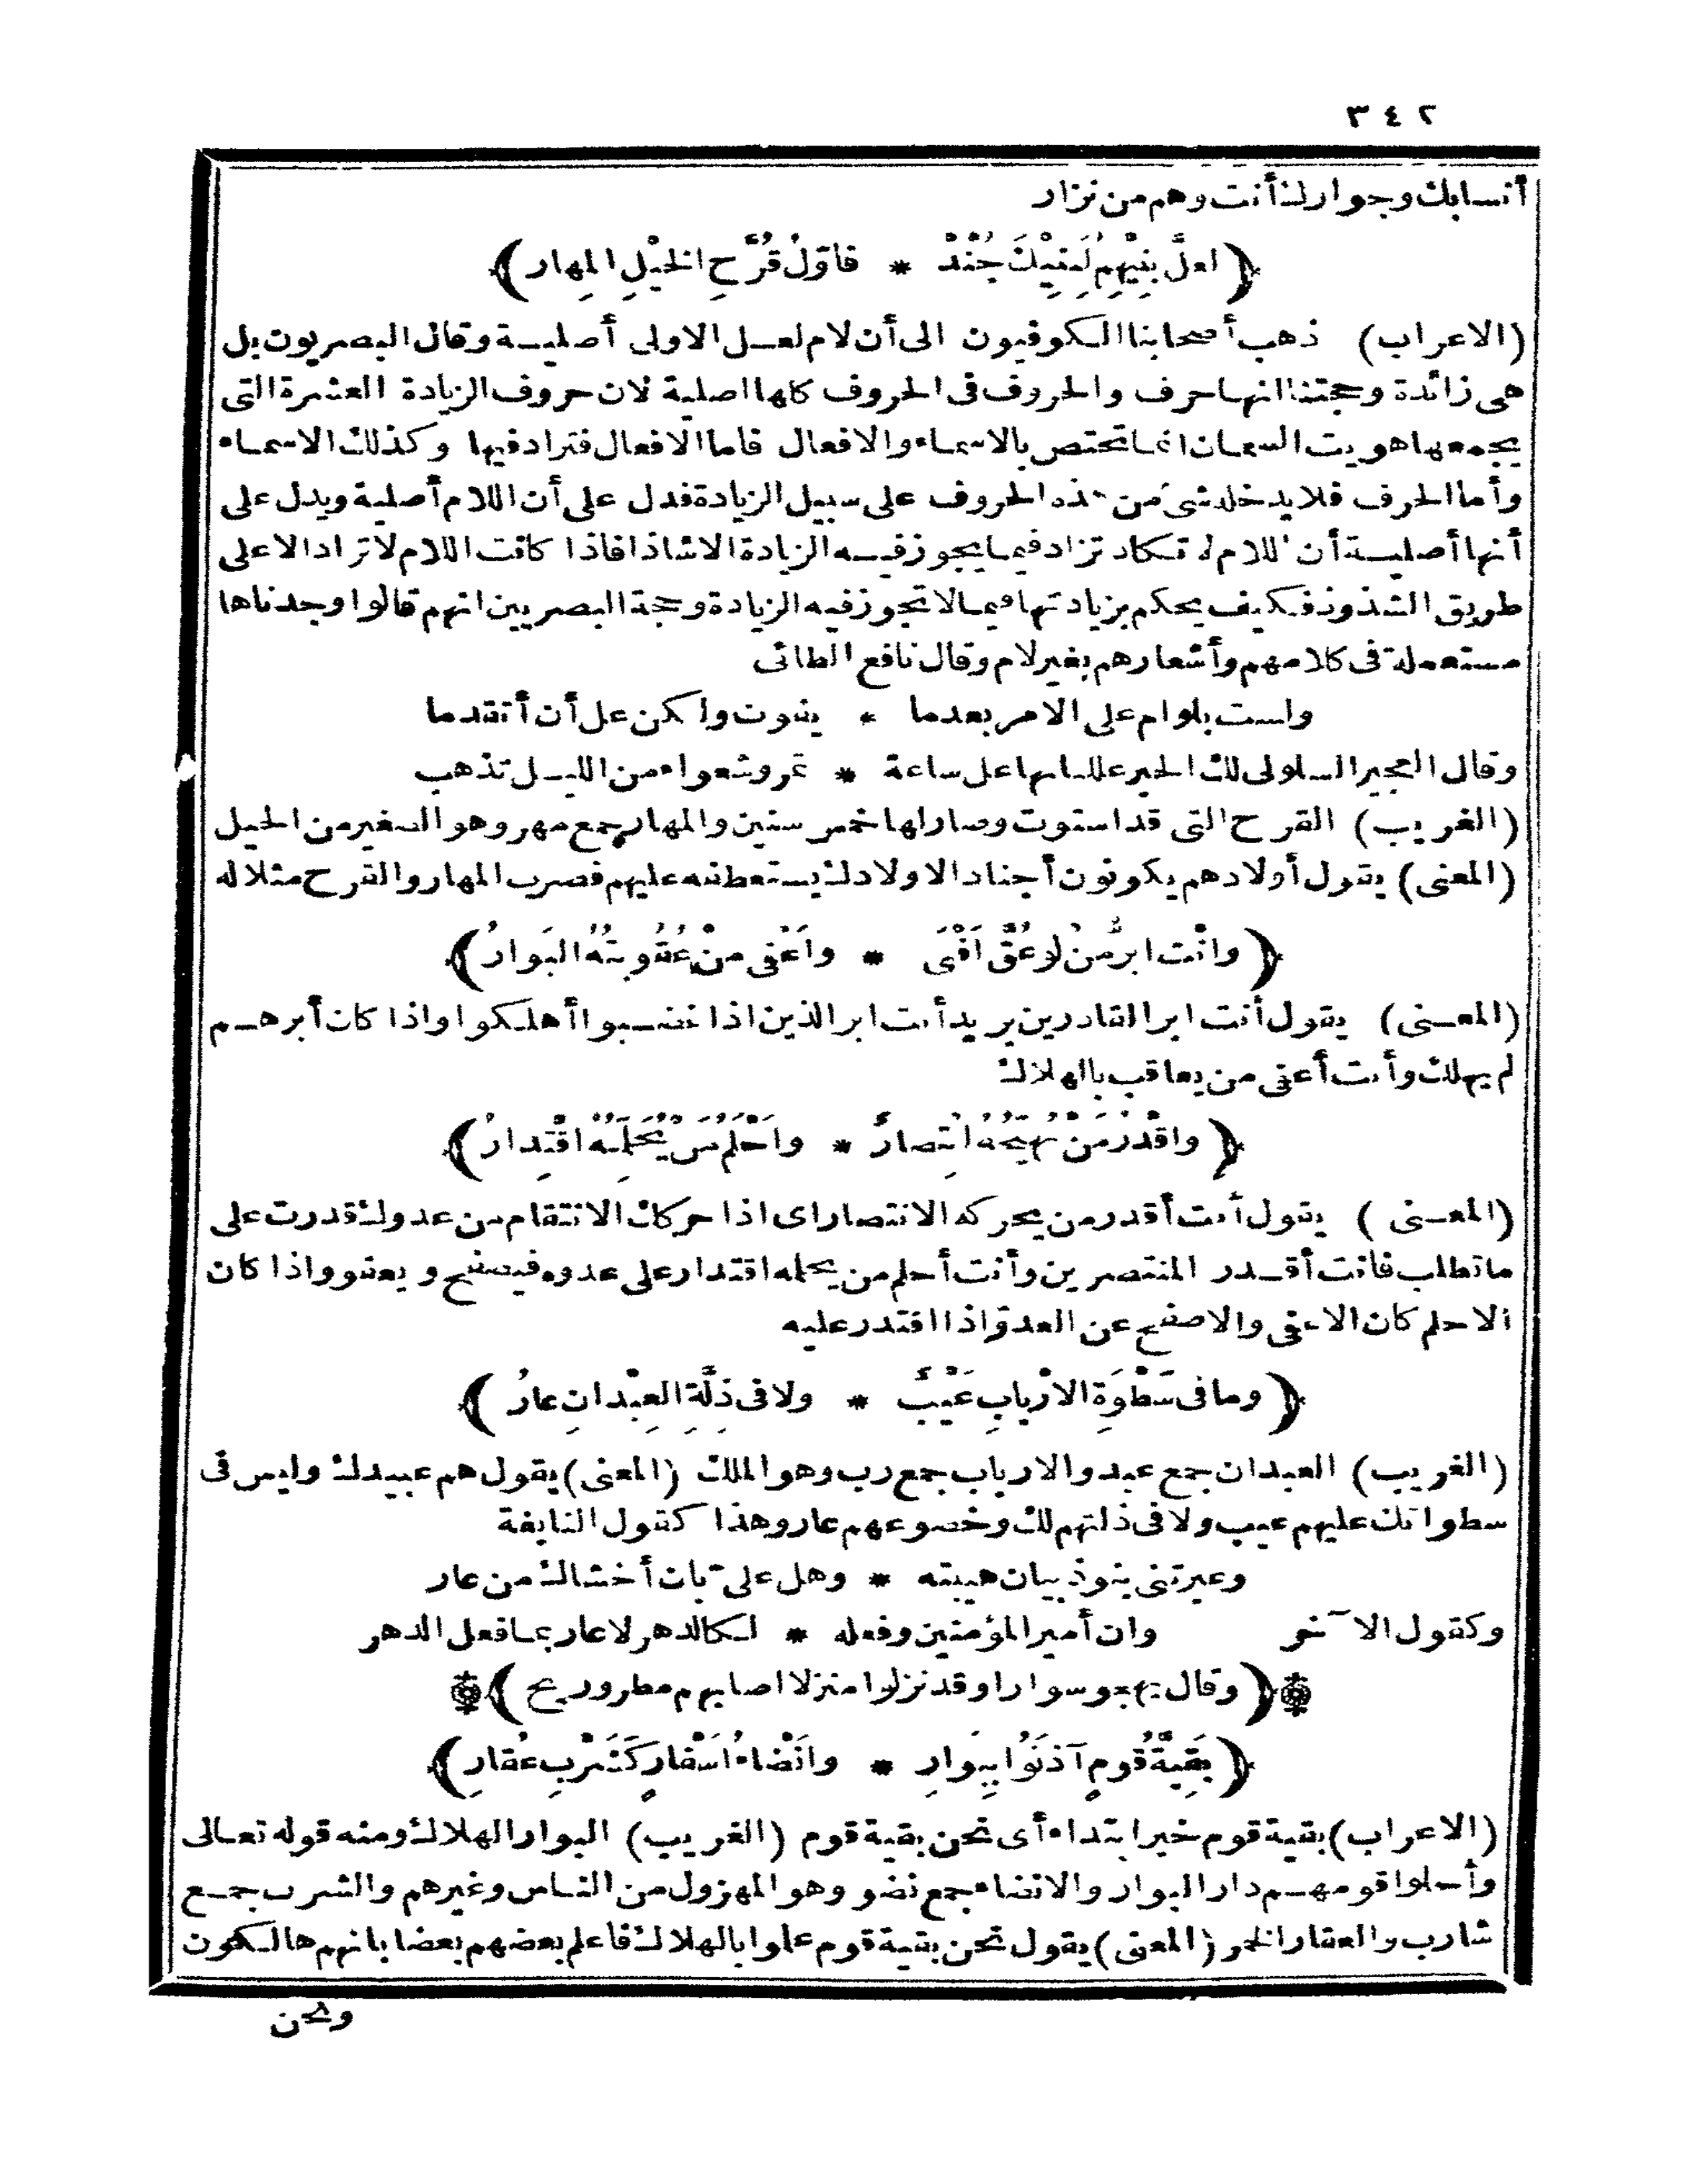 ٣٤٢
أنسابك وجوارك أنت وهم من نزار
﴿ لعلَّ بَنِيهِمِ لِبَنِيكَ جُنْدٌ * فاوّلُ قُرَّحِ الخَيْلِ المِهار ﴾
(الاعراب) ذهب أصحابنا الكوفيون الى أن لام لعل الاولى أصلية وقال البصريون بل
هى زائدة وحجتنا انها حرف والحروف فى الحروف كلها اصلية لان حروف الزيادة العشرة التى
يجمعها هويت السمان انما تختص بالاسماء والافعال فاما الافعال فتزاد فيها وكذلك الاسماء
وأما الحرف فلا يدخله شئ من هذه الحروف على سبيل الزيادة فدل على أن اللام أصلية ويدل على
أنها أصلية أن اللام لم تكاد تزاد فيما يجوز فيه الزيادة الا شاذا فاذا كانت اللام لا تزاد الا على
طريق الشذوذ فكيف يحكم بزيادتها فيما لا تجوز فيه الزيادة وحجة البصريين انهم قالوا وجدناها
مستعملة فى كلامهم وأشعارهم بغير لام وقال نافع الطائى
ولست بلوام على الامر بعدما * يفوت ولكن عل أن أتقدما
وقال العجير السلولى لك الخير عللنا بها عل ساعة * تمر وشعواء من الليل تذهب
(الغريب) القرح التى قد استوت وصار لها خمس سنين والمهار جمع مهر وهو الصغير من الخيل
(المعنى) يقول أولادهم يكونون أجنادا لاولادك يستعطفه عليهم فضرب المهار والقرح مثلا له
﴿ وانْت ابرُّ مَنْ لو عُقَّ اَفْنَى * واَعْفى مَنْ عُقُوبتُهُ البَوارُ ﴾
(المعنى) يقول أنت ابر القادرين يريد أنت ابر الذين اذا غضبوا أهلكوا واذا كان أبرهم
لم يهلك وأنت أعفى من يعاقب بالهلاك
﴿ واقْدَرُ مَنْ يُهَيِّجُهُ انْتِصارٌ * واَحْلَمُ مَنْ يُحَلِّمُهُ اقْتِدارُ ﴾
(المعنى) يقول أنت أقدر من يحركه الانتصار اى اذا حركك الانتقام من عدوك قدرت على
ما تطلب فانت أقدر المنتصرين وأنت أحلم من يحلمه اقتدار على عدوه فيصفح ويعفو واذا كان
الاحلم كان الاعفى والاصفح عن العدوّ اذا اقتدر عليه
﴿ وما فى سَطْوَةِ الارْبابِ عَيْبٌ * ولا فى ذِلَّةِ العِبْدانِ عارُ ﴾
(الغريب) العبدان جمع عبد والارباب جمع رب وهو الملك (المعنى) يقول هم عبيدك وليس فى
سطواتك عليهم عيب ولا فى ذلتهم لك وخضوعهم عار وهذا كقول النابغة
وعيرتنى بنو ذبيان هيبته * وهل على بان أخشاك من عار
وكقول الآخر وان أمير المؤمنين وفعله * لكالدهر لا عار بما فعل الدهر
﴿ وقال يهجو سوارا وقد نزلوا منزلا اصابهم مطر وريح ﴾
﴿ بَقِيَّةُ قَومٍ آذَنُوا بِبَوارِ * وانْضاءُ اَسْفارٍ كَشَرْبِ عُقارِ ﴾
(الاعراب) بقية قوم خبر ابتداء أى نحن بقية قوم (الغريب) البوار الهلاك ومنه قوله تعالى
وأحلوا قومهم دار البوار والانضاء جمع نضو وهو المهزول من الناس وغيرهم والشرب جمع
شارب والعقار الخمر (المعنى) يقول نحن بقية قوم علموا بالهلاك فاعلم بعضهم بعضا بانهم هالكون
ونحن